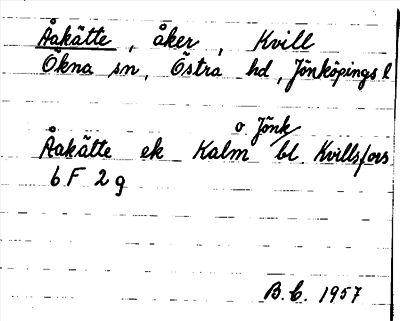 Åakätte, åker, Kvill
Ökna sn, Östra hd, Jönköpings l
o. Jönk/
Åakätte ek Kalm bl Kvillsfors
6 F 2 g
B. C. 1957